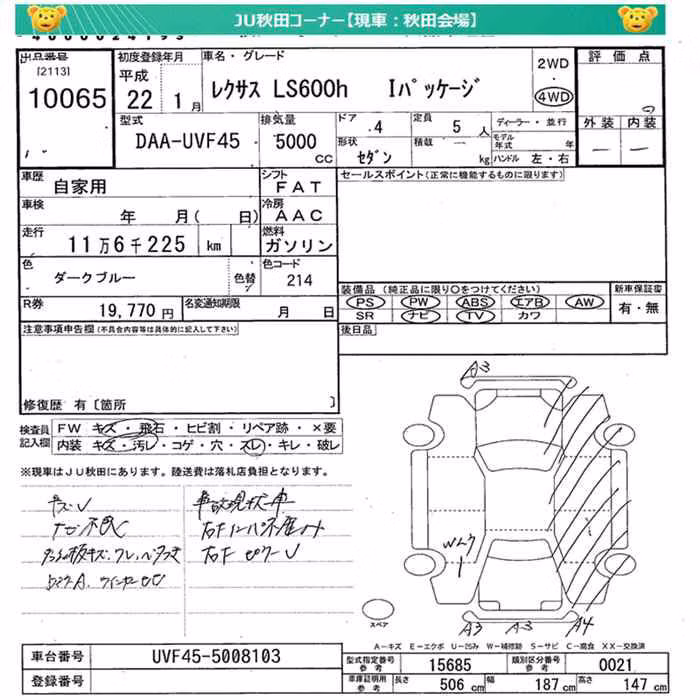 JU秋田コーナー【現車：秋田会場】
出品番号
[2113]
10065
初度登録年月
平成
22年 1月
車名・グレード
レクサス LS600h Iパッケージ
2WD
4WD
評価点
外装 内装
型式
DAA-UVF45
排気量
5000
cc
ドア
4
定員
5 人
形状
セダン
積載
kg
ディーラー・並行
モデル年式 年
ハンドル 左・右
車歴
自家用
シフト
FAT
車検
年 月( 日)
冷房
AAC
走行
11万6千225 km
燃料
ガソリン
色
ダークブルー
色替
色コード
214
R券
19,770円
名変通知期限
月 日
セールスポイント(正常に機能するものに限ります)
装備品 (純正品に限り○をつけてください)
PS PW ABS エアB AW
SR ナビ TV カワ
新車保証書
有・無
後日品
注意事項申告欄(不具合内容等は具体的に記入して下さい)
修復歴 有〔箇所 〕
検査員記入欄
FW キズ・飛石・ヒビ割・リペア跡・×要
内装 キズ・汚レ・コゲ・穴・スレ・キレ・破レ
※現車はJU秋田にあります。陸送費は落札店負担となります。
事故現状車
A3
Wムラ
A3 A3 A4
スペア
A－キズ E－エクボ U－凹み W－補修跡 S－サビ C－腐食 XX－交換済
車台番号
UVF45-5008103
登録番号
型式指定番号
参考
15685
類別区分番号
参考
0021
車庫証明用
参考
長さ
506 cm
幅
187 cm
高さ
147 cm